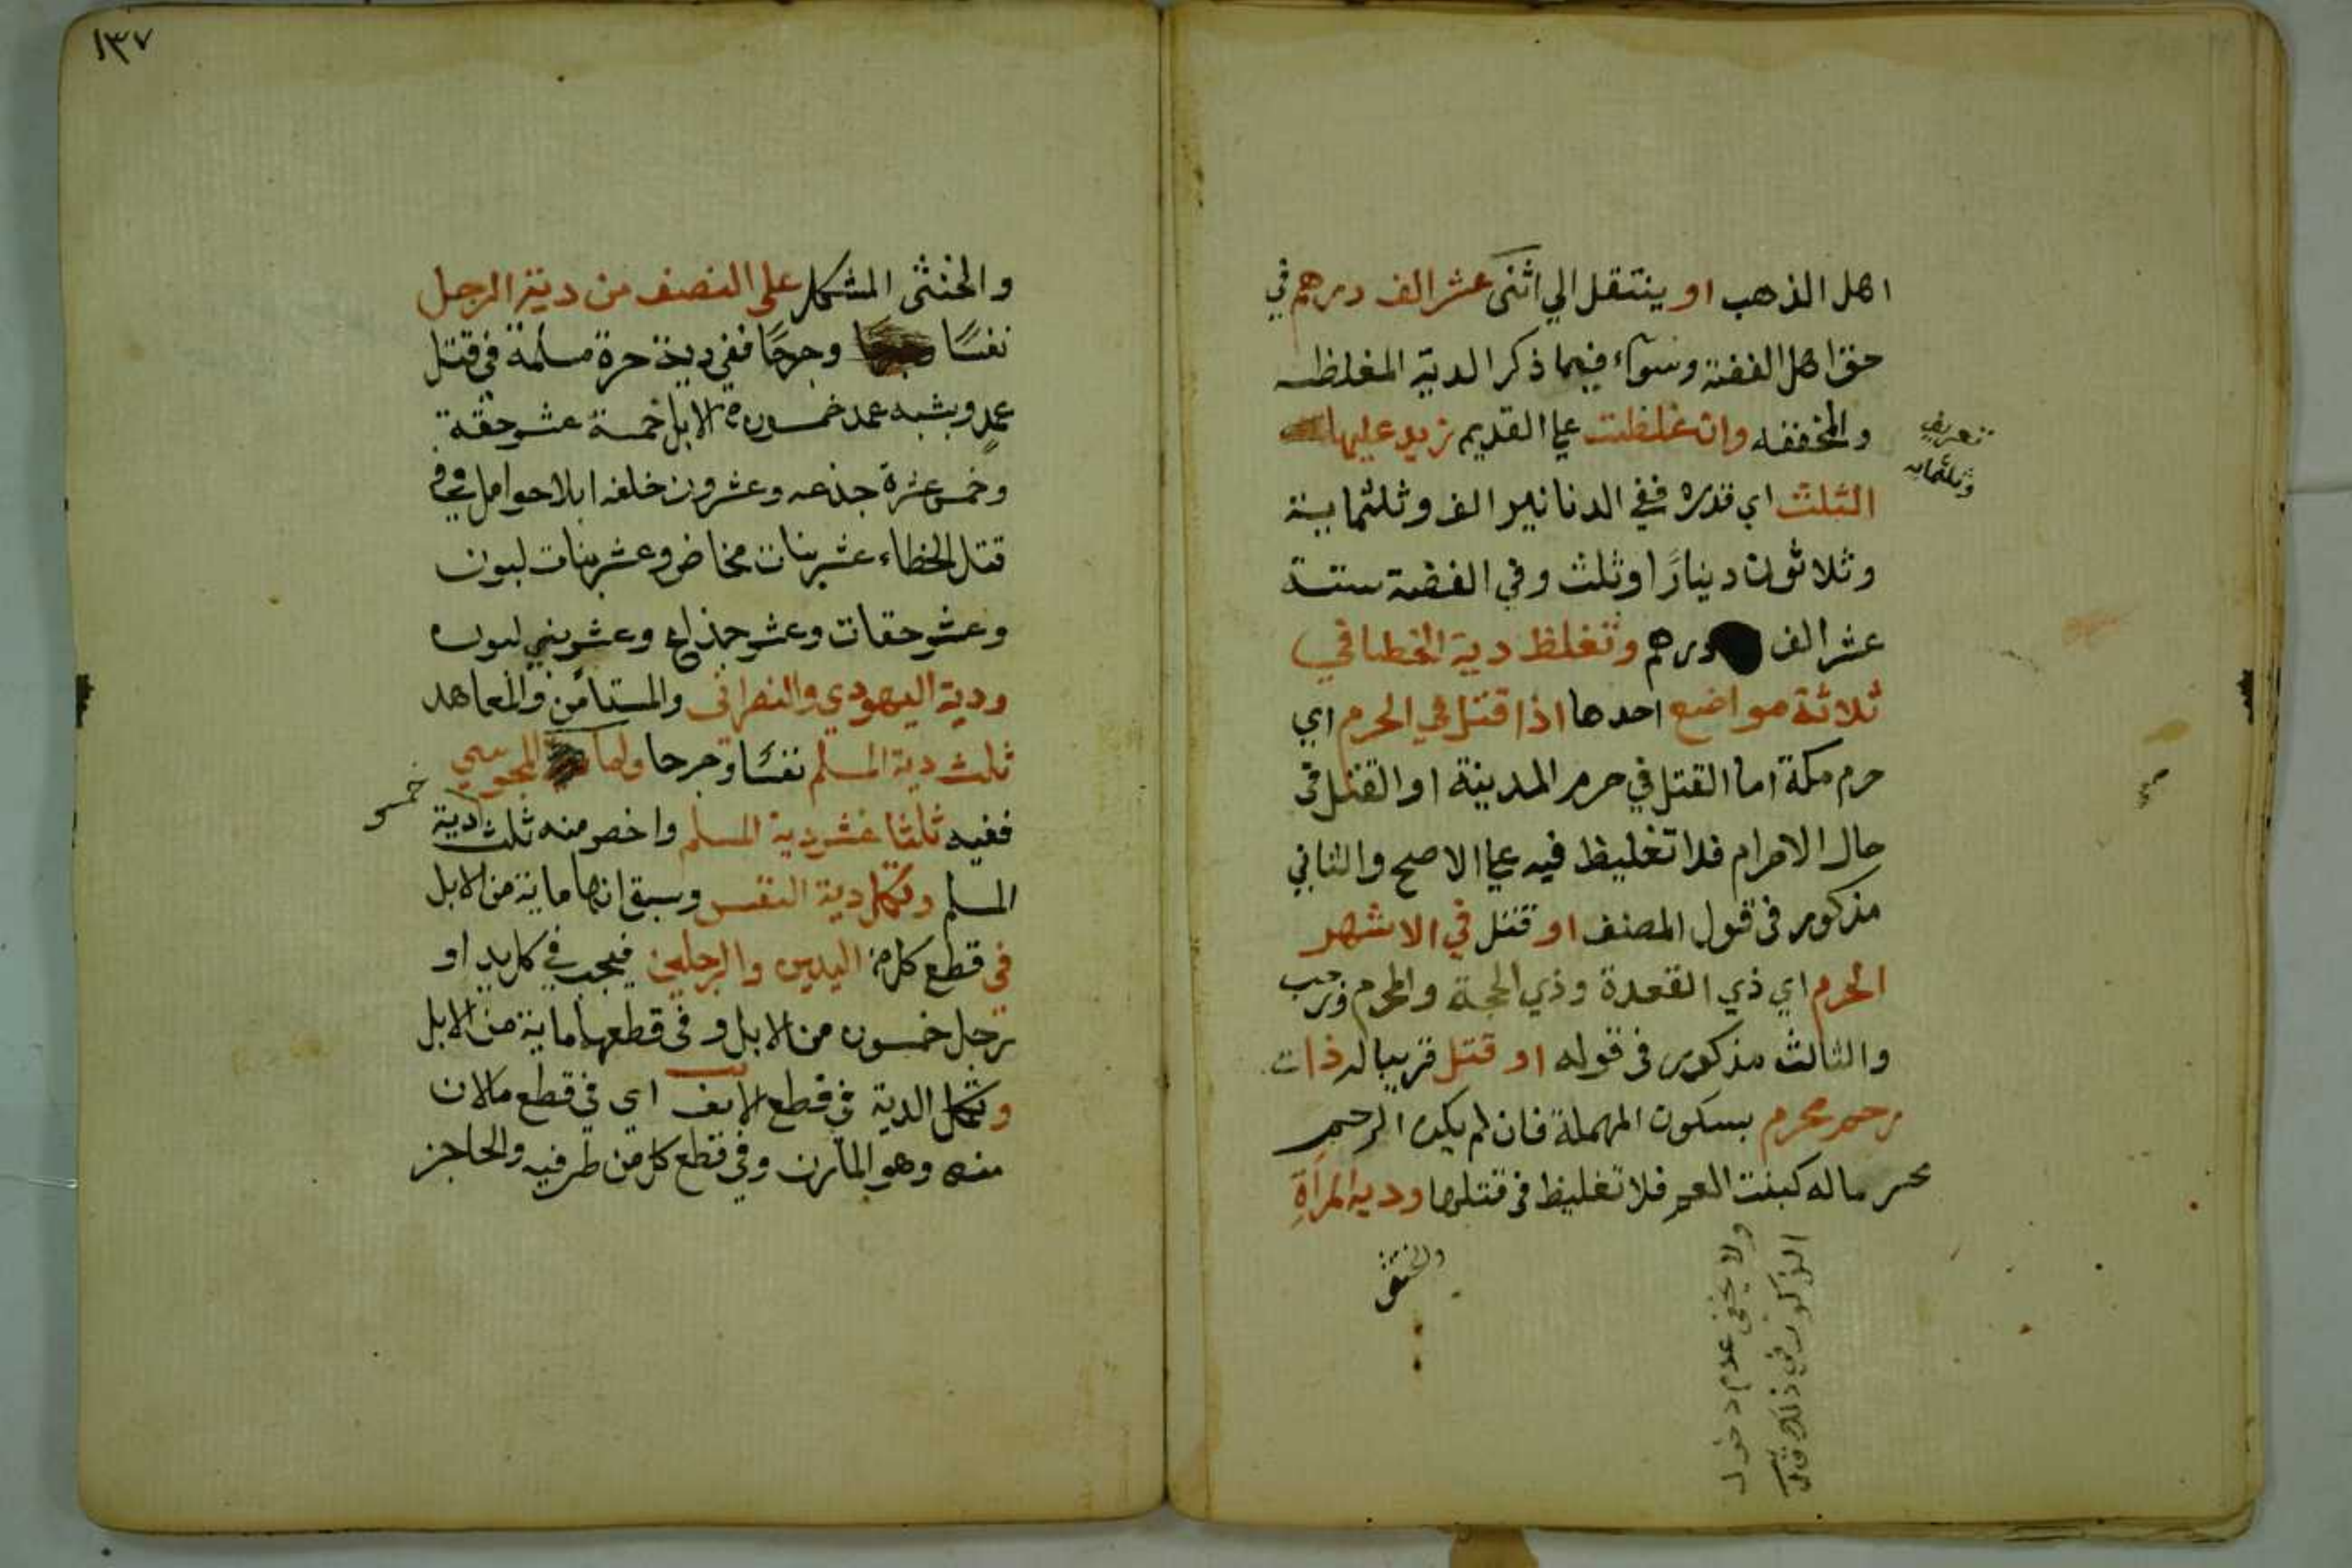 اهل الذهب او ينتقل الي اثنى عشر الف درهم في
حق اهل الفضة وسوآء فيما ذكر الدية المغلظه
والمخففه وان غلظت علي القديم زيد عليها
الثلث اي قدره ففي الدنانير الف وثلثماية
وثلاثون دينارًا وثلث وفي الفضة ستة
عشر الف درهم وتغلظ دية الخطا في
ثلاثة مواضع احدها اذا قتل في الحرم اي
حرم مكة اما القتل في حرم المدينة او القتل في
حال الاحرام فلا تغليظ فيه علي الاصح والثاني
مذكور في قول المصنف او قتل في الاشهر
الحرم اي ذي القعدة وذي الحجة والمحرم ورجب
والثالث مذكور في قوله او قتل قريبا له ذات
رحم محرم بسكون المهملة فان لم يكن الرحم
محرما له كبنت العم فلا تغليظ في قتلها ودية المرأة
والخنثى
ولا يخفى عدم دخول
الذكور في ذلك
١٣٧
والخنثى المشكل على النصف من دية الرجل
نفسًا وجرحًا ففي دية حرة مسلمة في قتل
عمدٍ وشبه عمد خمسون من الابل خمسة عشر حقة
وخمس عشرة جذعه وعشرون خلفه ابلا حوامل وفي
قتل الخطاء عشر بنات مخاض وعشر بنات لبون
وعشر حقات وعشر جذاع وعشر بني لبون
ودية اليهودي والنصراني والمستأمن والمعاهد
ثلث دية المسلم نفسًا وجرحا واما المجوسي
ففيه ثلثا عشر دية المسلم واخصر منه ثلث دية
خمس
المسلم وتكمل دية النفس وسبق انها ماية من الابل
في قطع كل من اليدين والرجلين فيجب في كل يد او
رجل خمسون من الابل وفي قطعها ماية من الابل
وتكمل الدية في قطع الانف اي في قطع مالان
منه وهو المارن وفي قطع كل من طرفيه والحاجز